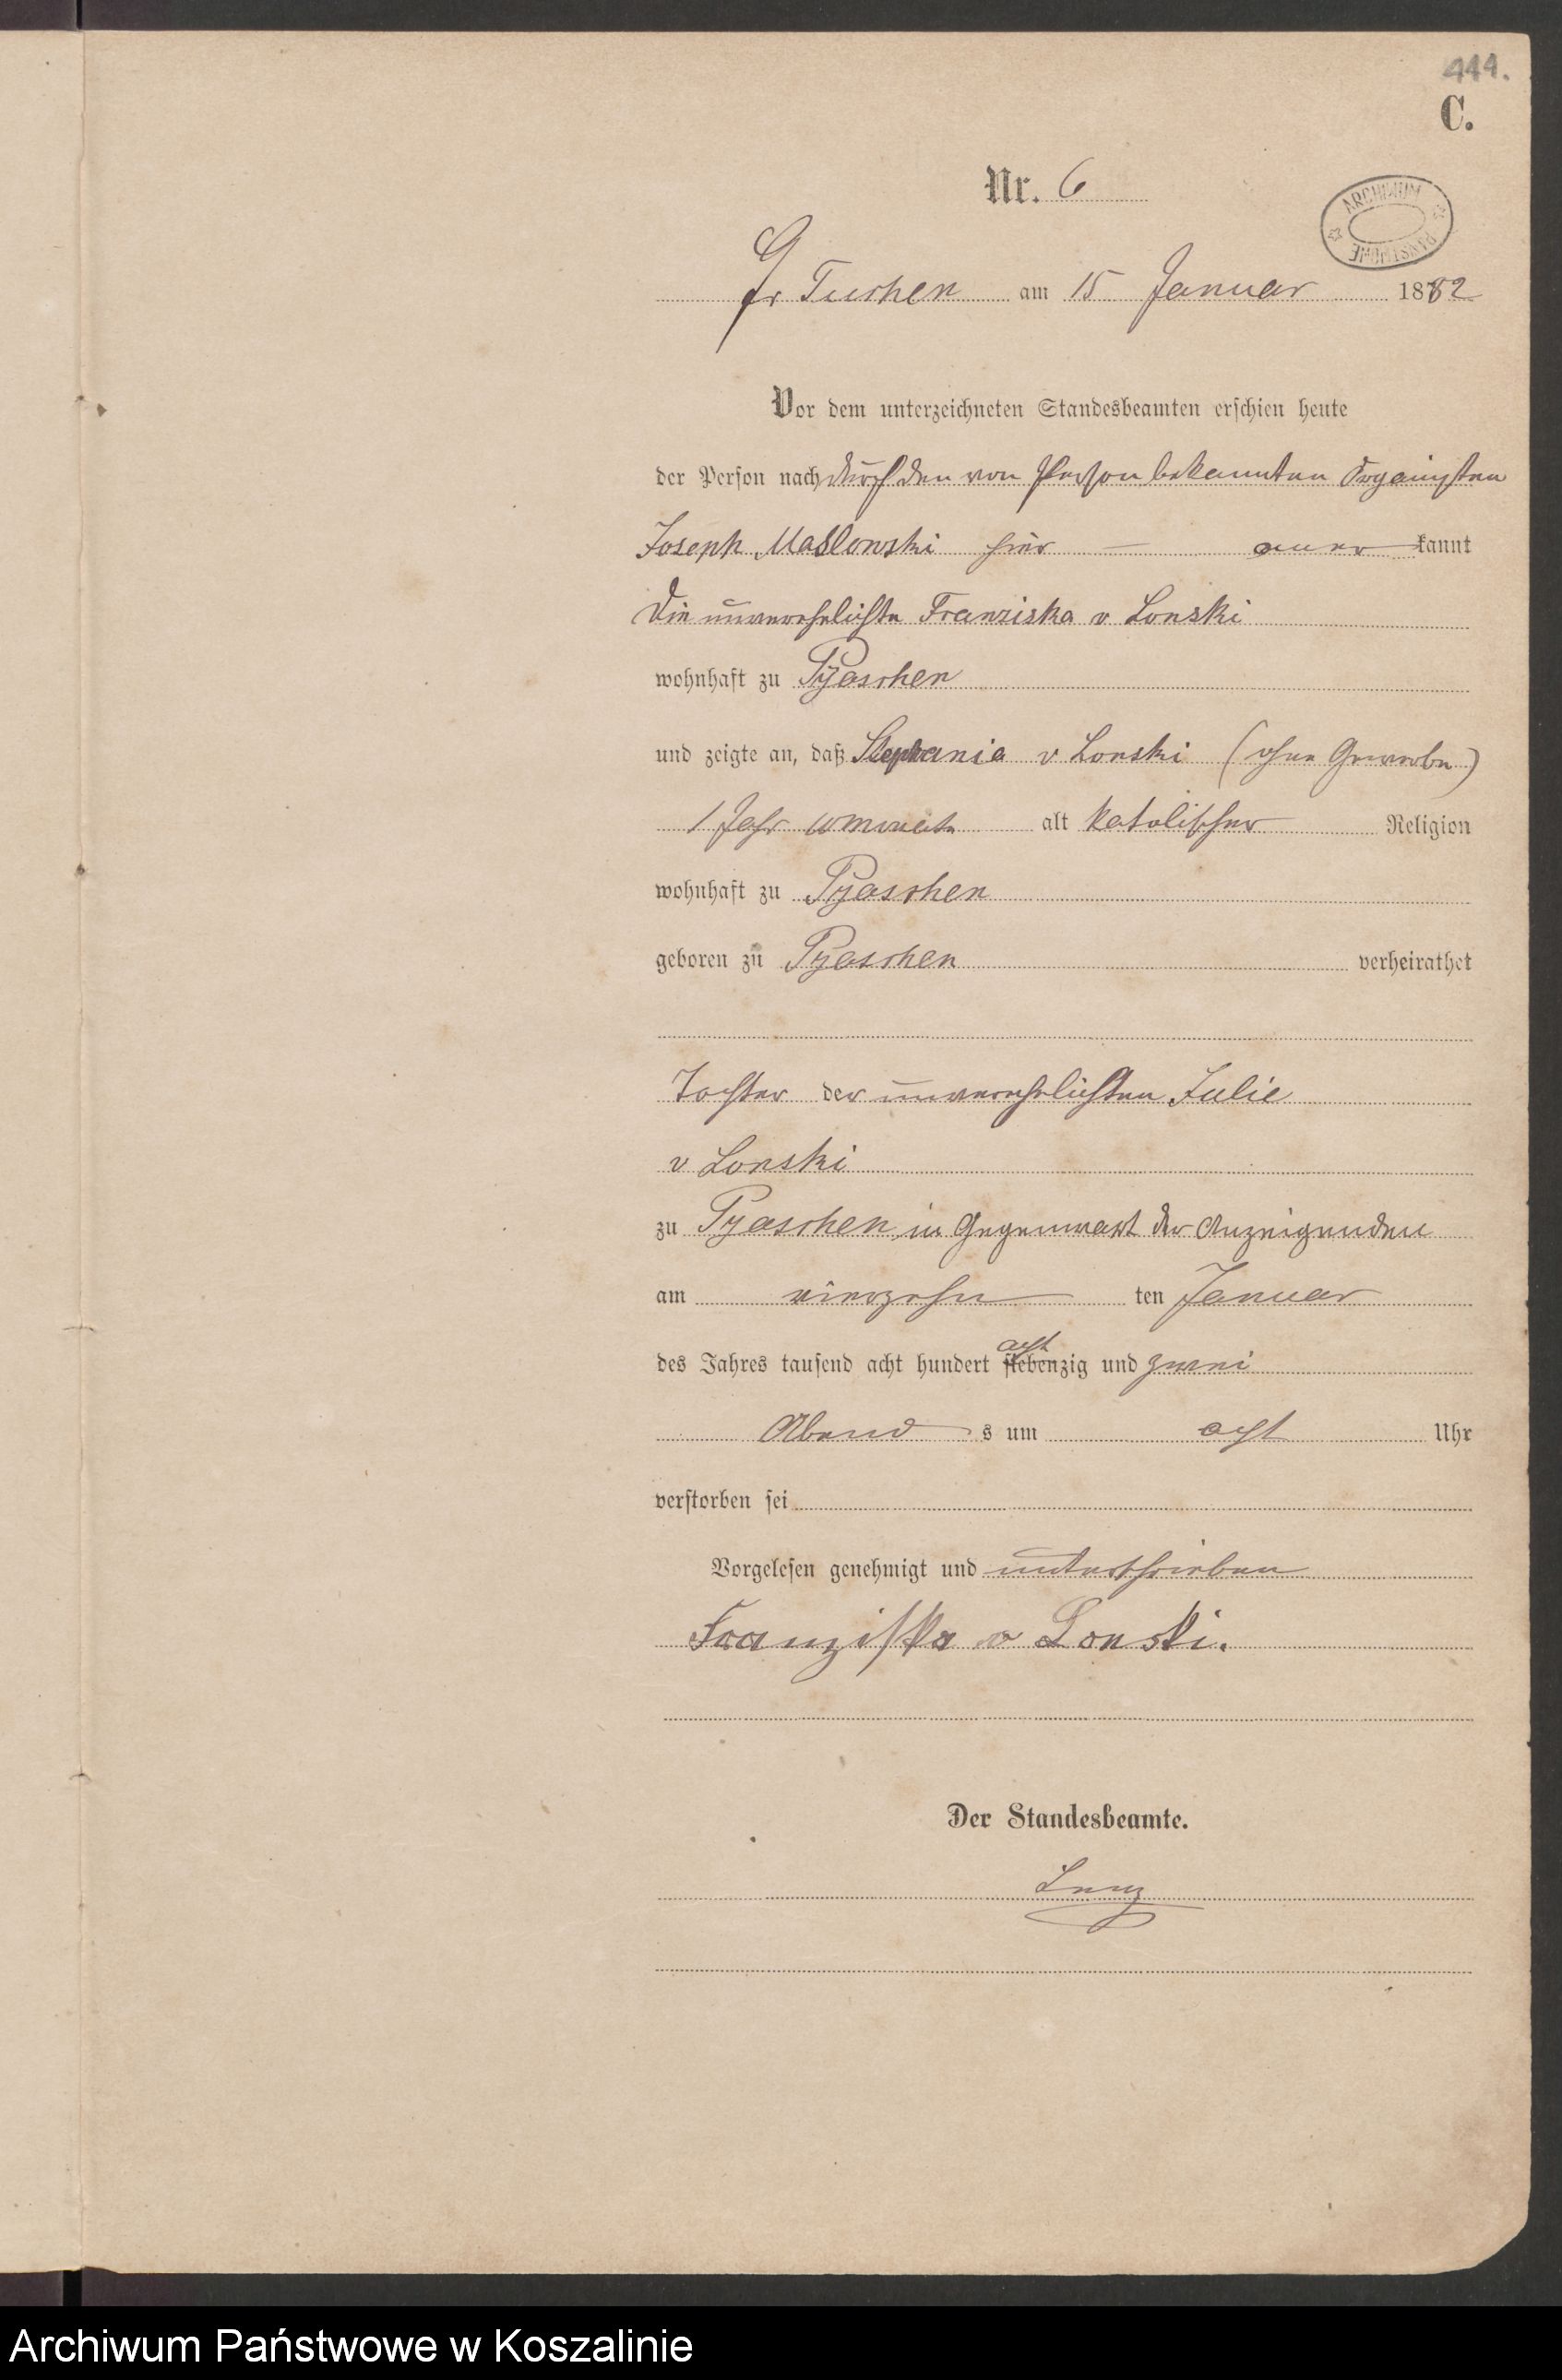 444.
C.
Nr. 6
Gr Tuchen am 15 Januar 1882
ARCHIWUM PAŃSTWOWE
Vor dem unterzeichneten Standesbeamten erschien heute
der Person nach durch den von Person bekannten Organisten
Joseph Maslowski hier — aner kannt
Die unverehelichte Franziska v Lonski
wohnhaft zu Pyaschen
und zeigte an, daß Stephania v Lonski (ohne Gewerbe)
1 Jahr 10 Monate alt katolischer Religion
wohnhaft zu Pyaschen
geboren zu Pyaschen verheirathet
Tochter der unverehelichten Julie
v Lonski
zu Pyaschen in Gegenwart der Anzeigenden
am vierzehn ten Januar
acht
des Jahres tausend acht hundert siebenzig und zwei
Abend s um acht Uhr
verstorben sei
Vorgelesen genehmigt und unterschrieben
Franziska v Lonski.
Der Standesbeamte.
Lenz
Archiwum Państwowe w Koszalinie